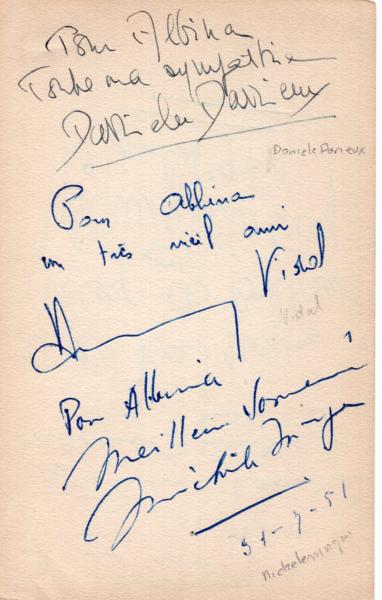 Pour Albina
Toute ma sympathie
Danielle Darrieux
Daniele Darieux
Pour Albina
un très vieil ami
Vidal
Vidal
Pour Albina
Meilleur souvenir
31-7-51